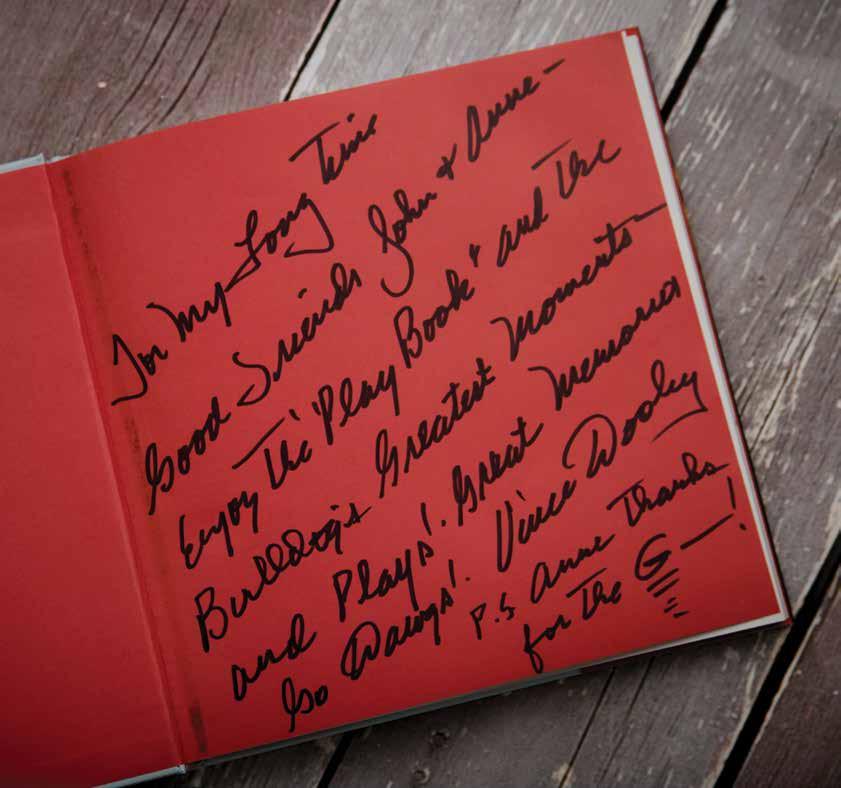 For My Long Time
Good Friends John & Anne -
Enjoy The "Play Book" and The
Bulldog's Greatest Moments -
and Plays! Great Memories
Go Dawgs! Vince Dooley
P.S Anne Thanks
for The G - !